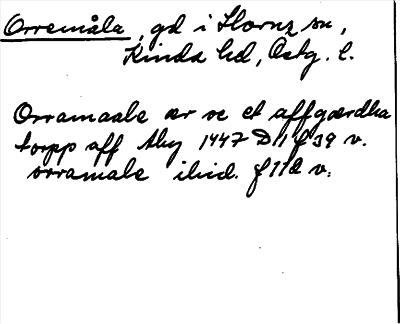 Orremåla, gd i Horns sn,
Kinda hd, Östg. l.
Orramaale ær oc et affgærdha
torpp aff thy 1447 D 11 f 39 v.
orramale ibid. f 112 v.